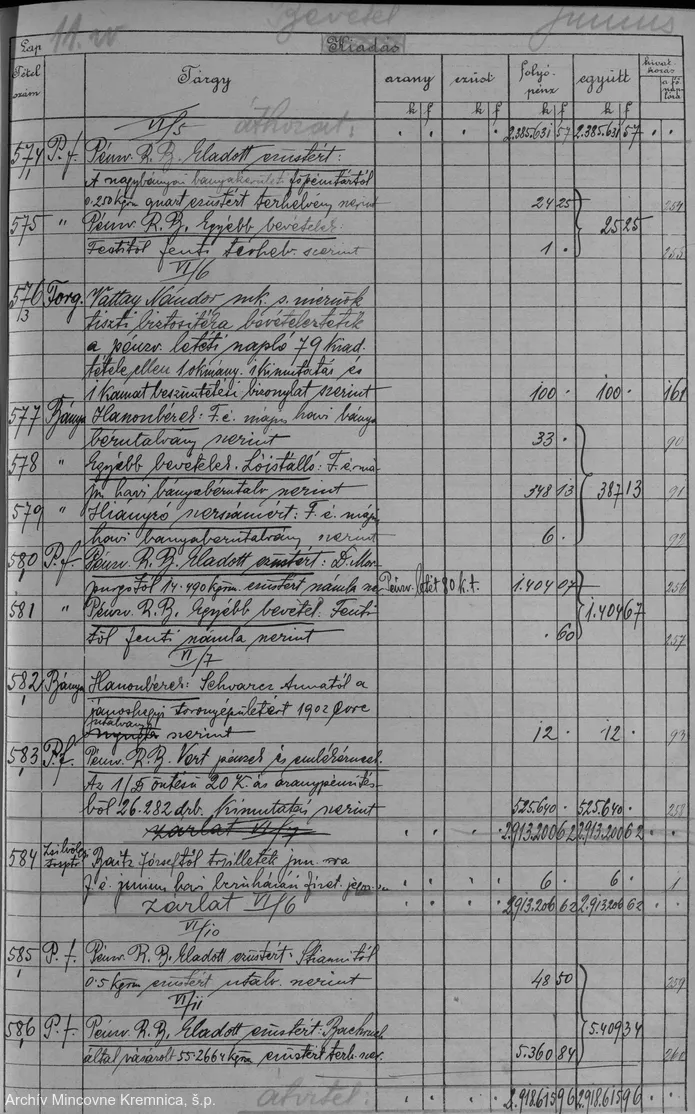 Bevétel Junius
11. iv Kiadás
Lap
Tétel szám Tárgy arany ezüst folyó-pénz együtt hivatkozás a főnaplóra
k f k f k f k f
VI/5 áthozat: 2.385.631 57 2.385.631 57
574 P.f. Pénzv. R.B. Eladott ezüstért:
1 A nagybányai bányakerületi főpénztártól
0.250 kgrm quart ezüstért terhelvény szerint 24 25 254
575 " Pénzv. R.B. Egyébb bevételek: 25 25
Festitől fenti térhelv. szerint 1 . 255
VI/6
576 Forg. Vattay Nándor mk. s. mérnök
3 tiszti biztositéka bevételeztetik
a pénzv. letéti napló 79 kiad.
tétele ellen 1 okmány. 1 kimutatás és
1 kamat beszüntetési bizonylat szerint 100 . 100 . 161
577 Bánya Haszonbérek: F. é. május havi bánya
bérutalvány szerint 33 . 90
578 " Egyébb bevételek. Lóistálló: F. é. má-
jus havi bányabérutalv. szerint 348 13 387 13 91
579 " Hiányzó szerszámért: F. é. május
havi bányabérutalvány szerint 6 . 92
580 P.f. Pénzv. R.B. Eladott ezüstért: D. Mor-
purgotól 14.490 kgrm. ezüstért számla sze- Pénzv. letét 80 k.t. 1.404 07 256
581 " Pénzv. R.B. Egyébb bevétel. Fenti 1.404 67
től fenti számla szerint . 60 257
VI/7
582 Bánya Haszonbérek: Schwarcz Annától a
1 jánoshegyi toronyépületért 1902 évre
utalvány
nyugta szerint 12 . 12 . 93
583 P.f. Pénzv. R.B. Vert pénzek és emlékérmek.
1 Az 1/II öntésü 20 K. ás aranypénzítés-
ből 26.282 drb. Kimutatás szerint 525.640 . 525.640 . 258
zárlat VI/7 2.913.200 62 2.913.200 62
584 Baitz Józseftől
f. é. junius havi beruházási fizet. 6 . 6 . 1
zárlat VI/6 2.913.206 62 2.913.206 62
VI/10
585 P.f. Pénzv. R.B. Eladott ezüstért:
1 0.5 kgrm ezüstért utalv. szerint 48 50 259
VI/11
586 P.f. Pénzv. R.B. Eladott ezüstért. Bachruch 5.409 34
1 által vásárolt 55.2664 kgrm. ezüstért terh. szer. 5.360 84 260
átvitel: 2.918.615 96 2.918.615 96
Archív Mincovne Kremnica, š.p.